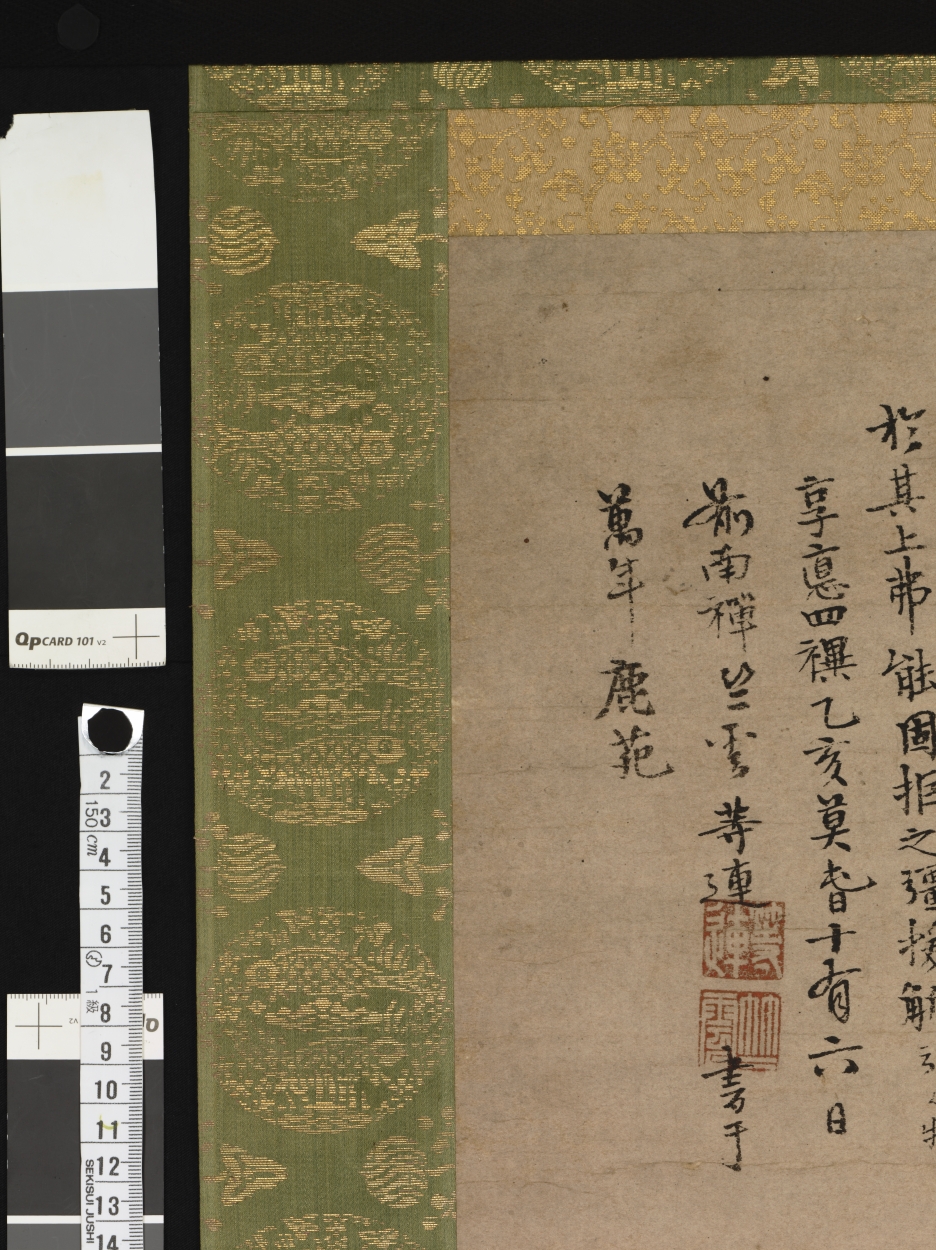 於其上弗能固拒之彊援觚
享悳四禩乙亥莫春十有六日
前南禪竺雲等連書于
萬年鹿苑
等連
竺雲
QPCARD 101 v2
2
3
4
5
6
7
8
9
10
11
12
13
14
150 cm
1級
SEKISUI JUSHI
v2